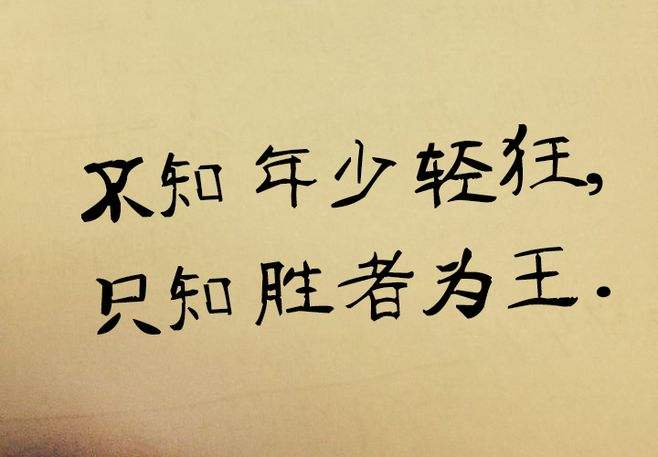 不知年少轻狂,
只知胜者为王.